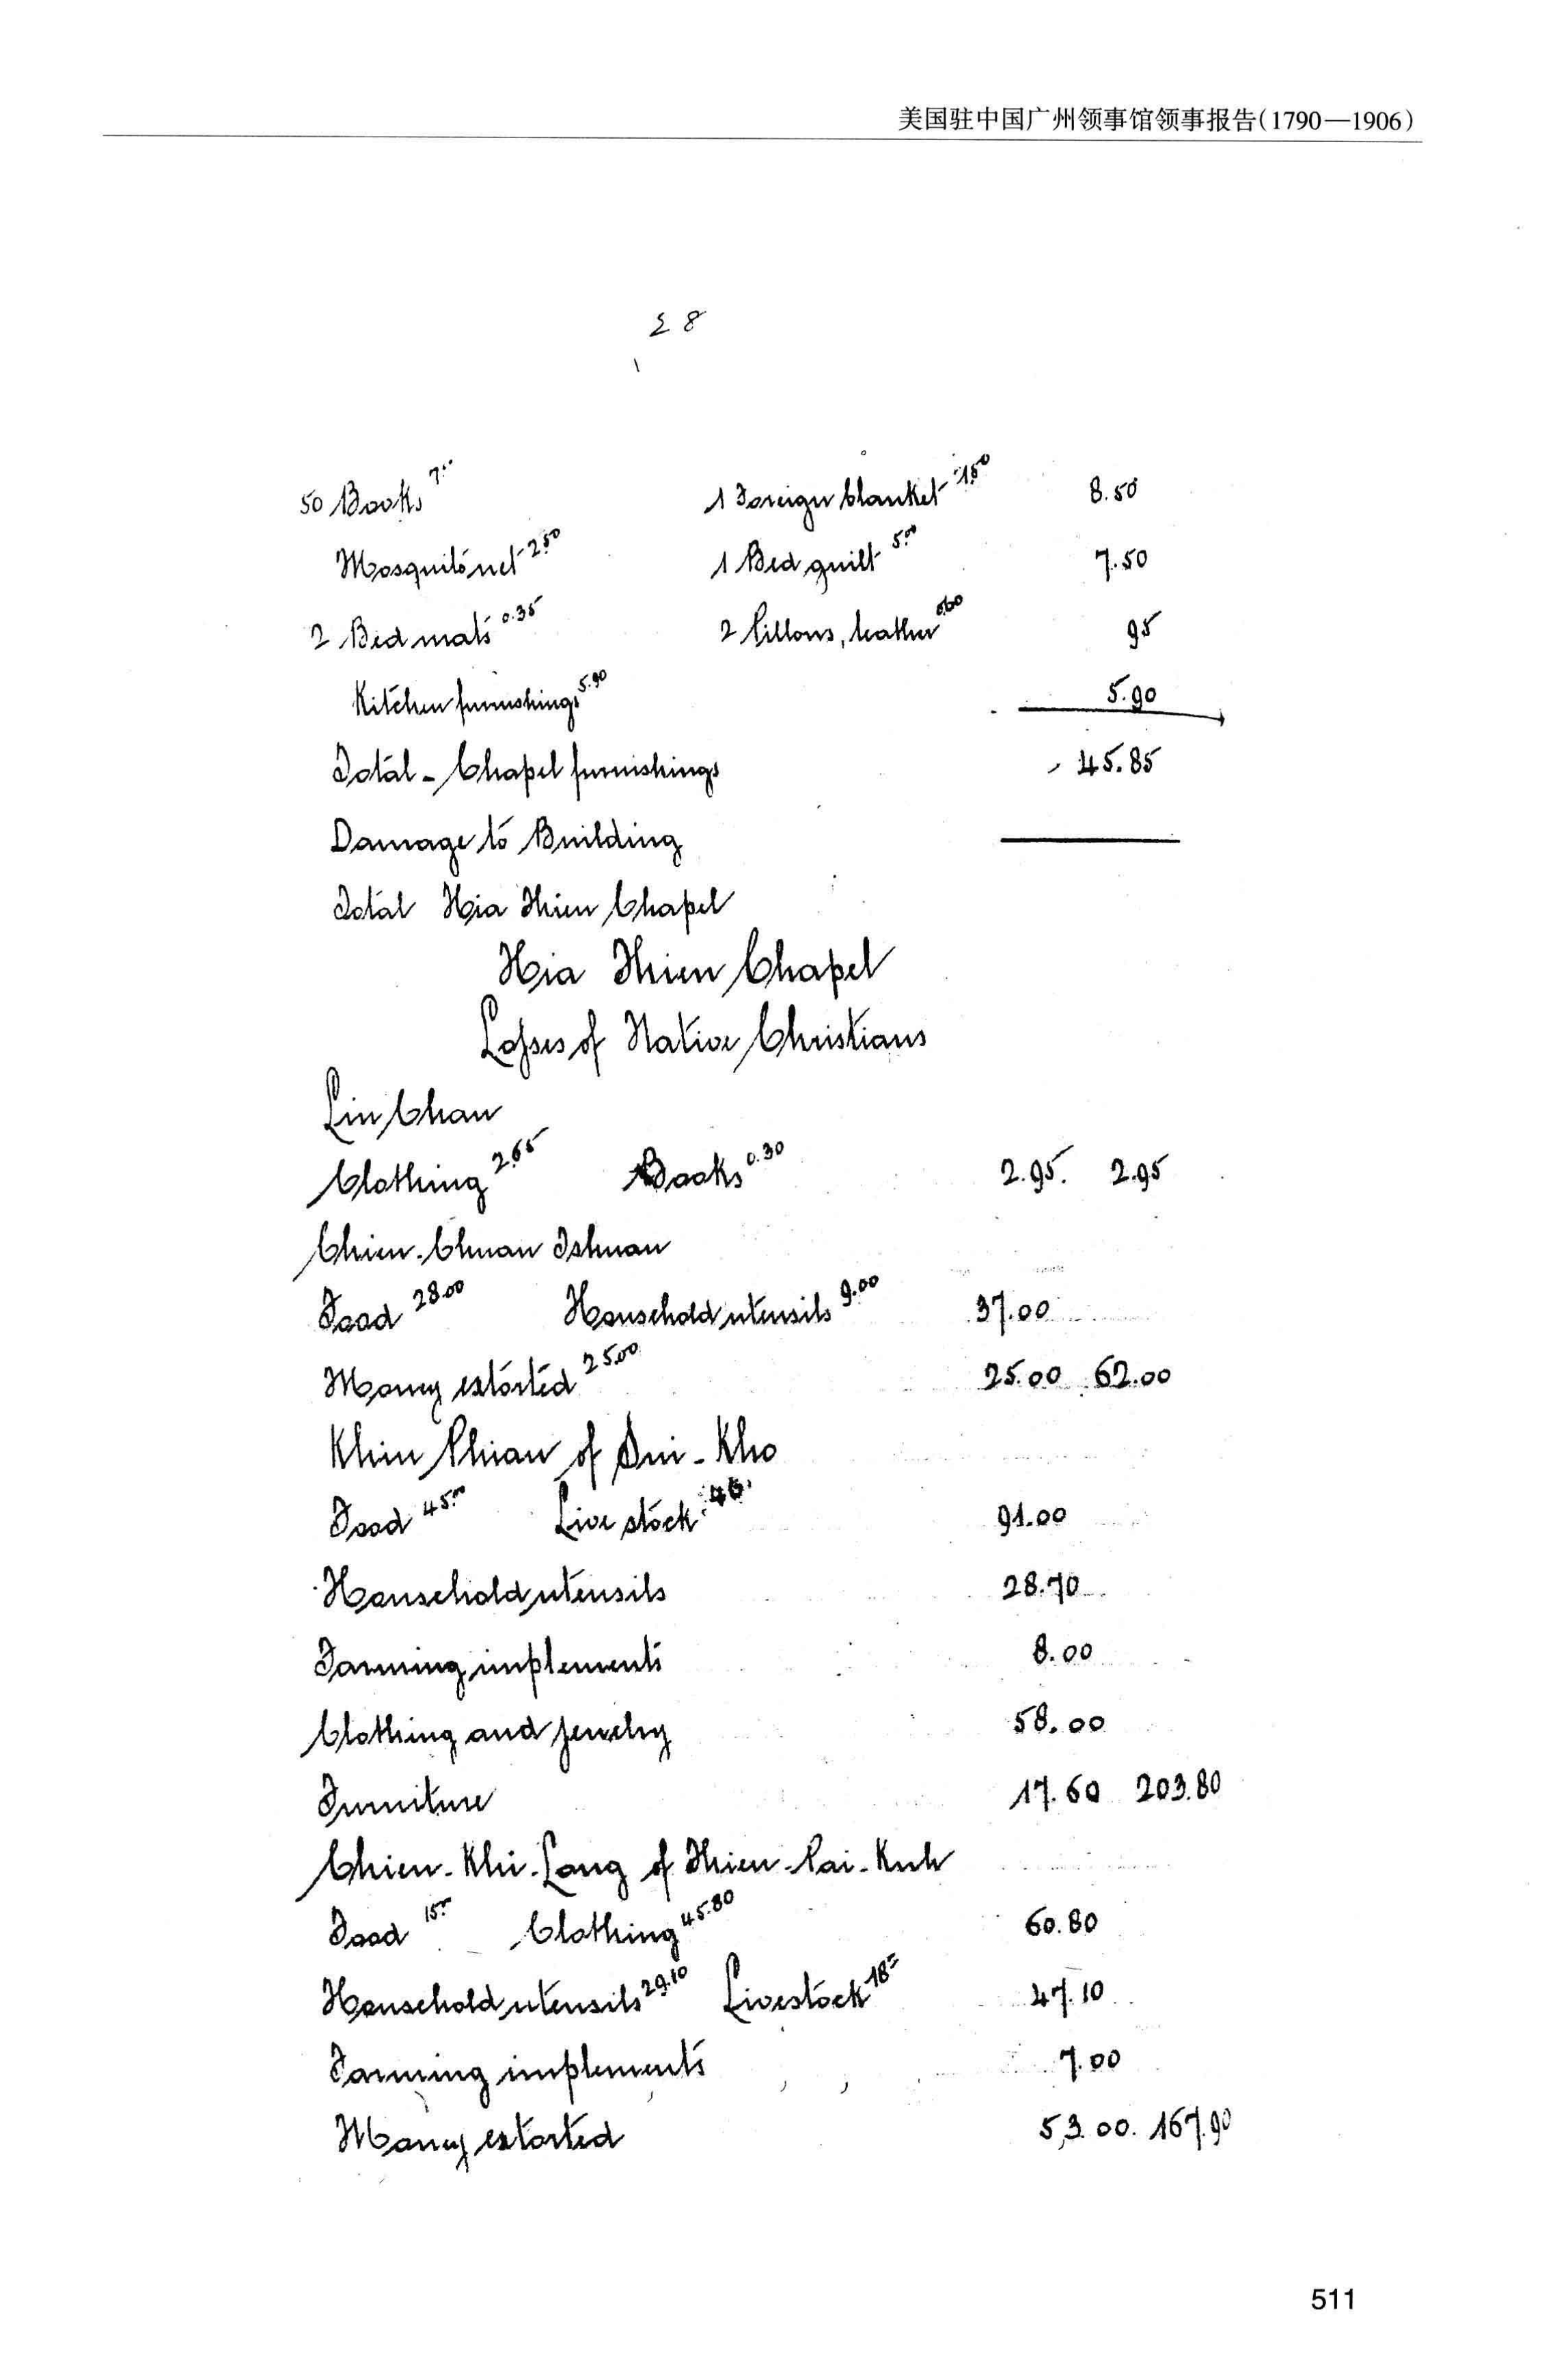 美国驻中国广州领事馆领事报告(1790—1906)
28
50 Books 7.00 1 Foreign blanket 1.50 8.50
Mosquito net 2.50 1 Bed quilt 5.00 7.50
2 Bed mats 0.35 2 Pillows, leather 0.60 95
Kitchen furnishings 5.90 5.90
Total - Chapel furnishings 45.85
Damage to Building
Total Hia Thien Chapel
Hia Thien Chapel
Losses of Native Christians
Lin Chan
Clothing 2.65 Books 0.30 2.95. 2.95
Chien-Chuan Tshuan
Food 28.00 Household utensils 9.00 37.00
Money extorted 25.00 25.00 62.00
Khin Phian of Sui-Kho
Food 45.00 Live stock 46. 91.00
Household utensils 28.70
Farming implements 8.00
Clothing and jewelry 58.00
Furniture 17.60 203.80
Chien-Khi-Long of Thien-Pai-Kuh
Food 15 Clothing 45.80 60.80
Household utensils 29.10 Livestock 18 47.10
Farming implements 7.00
Money extorted 53.00. 167.90
511